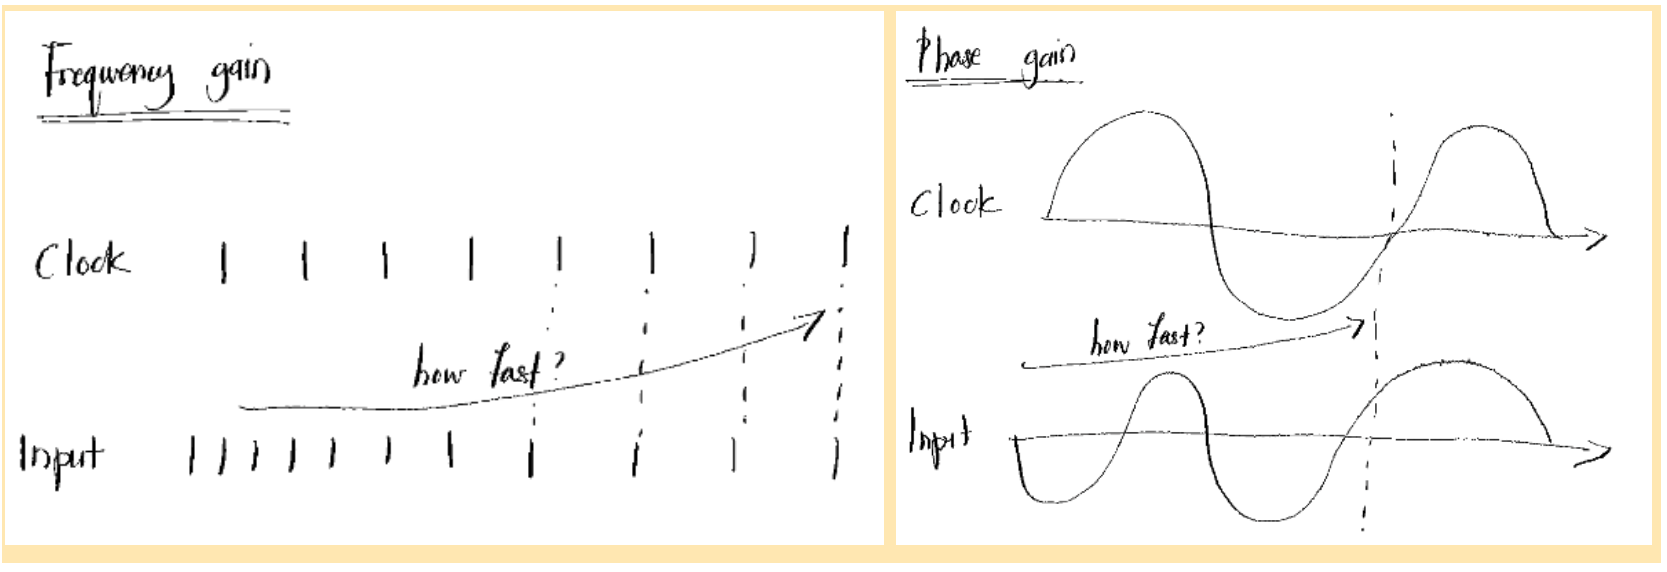 Frequency gain
Clock
how fast?
Input
Phase gain
Clock
how fast?
Input